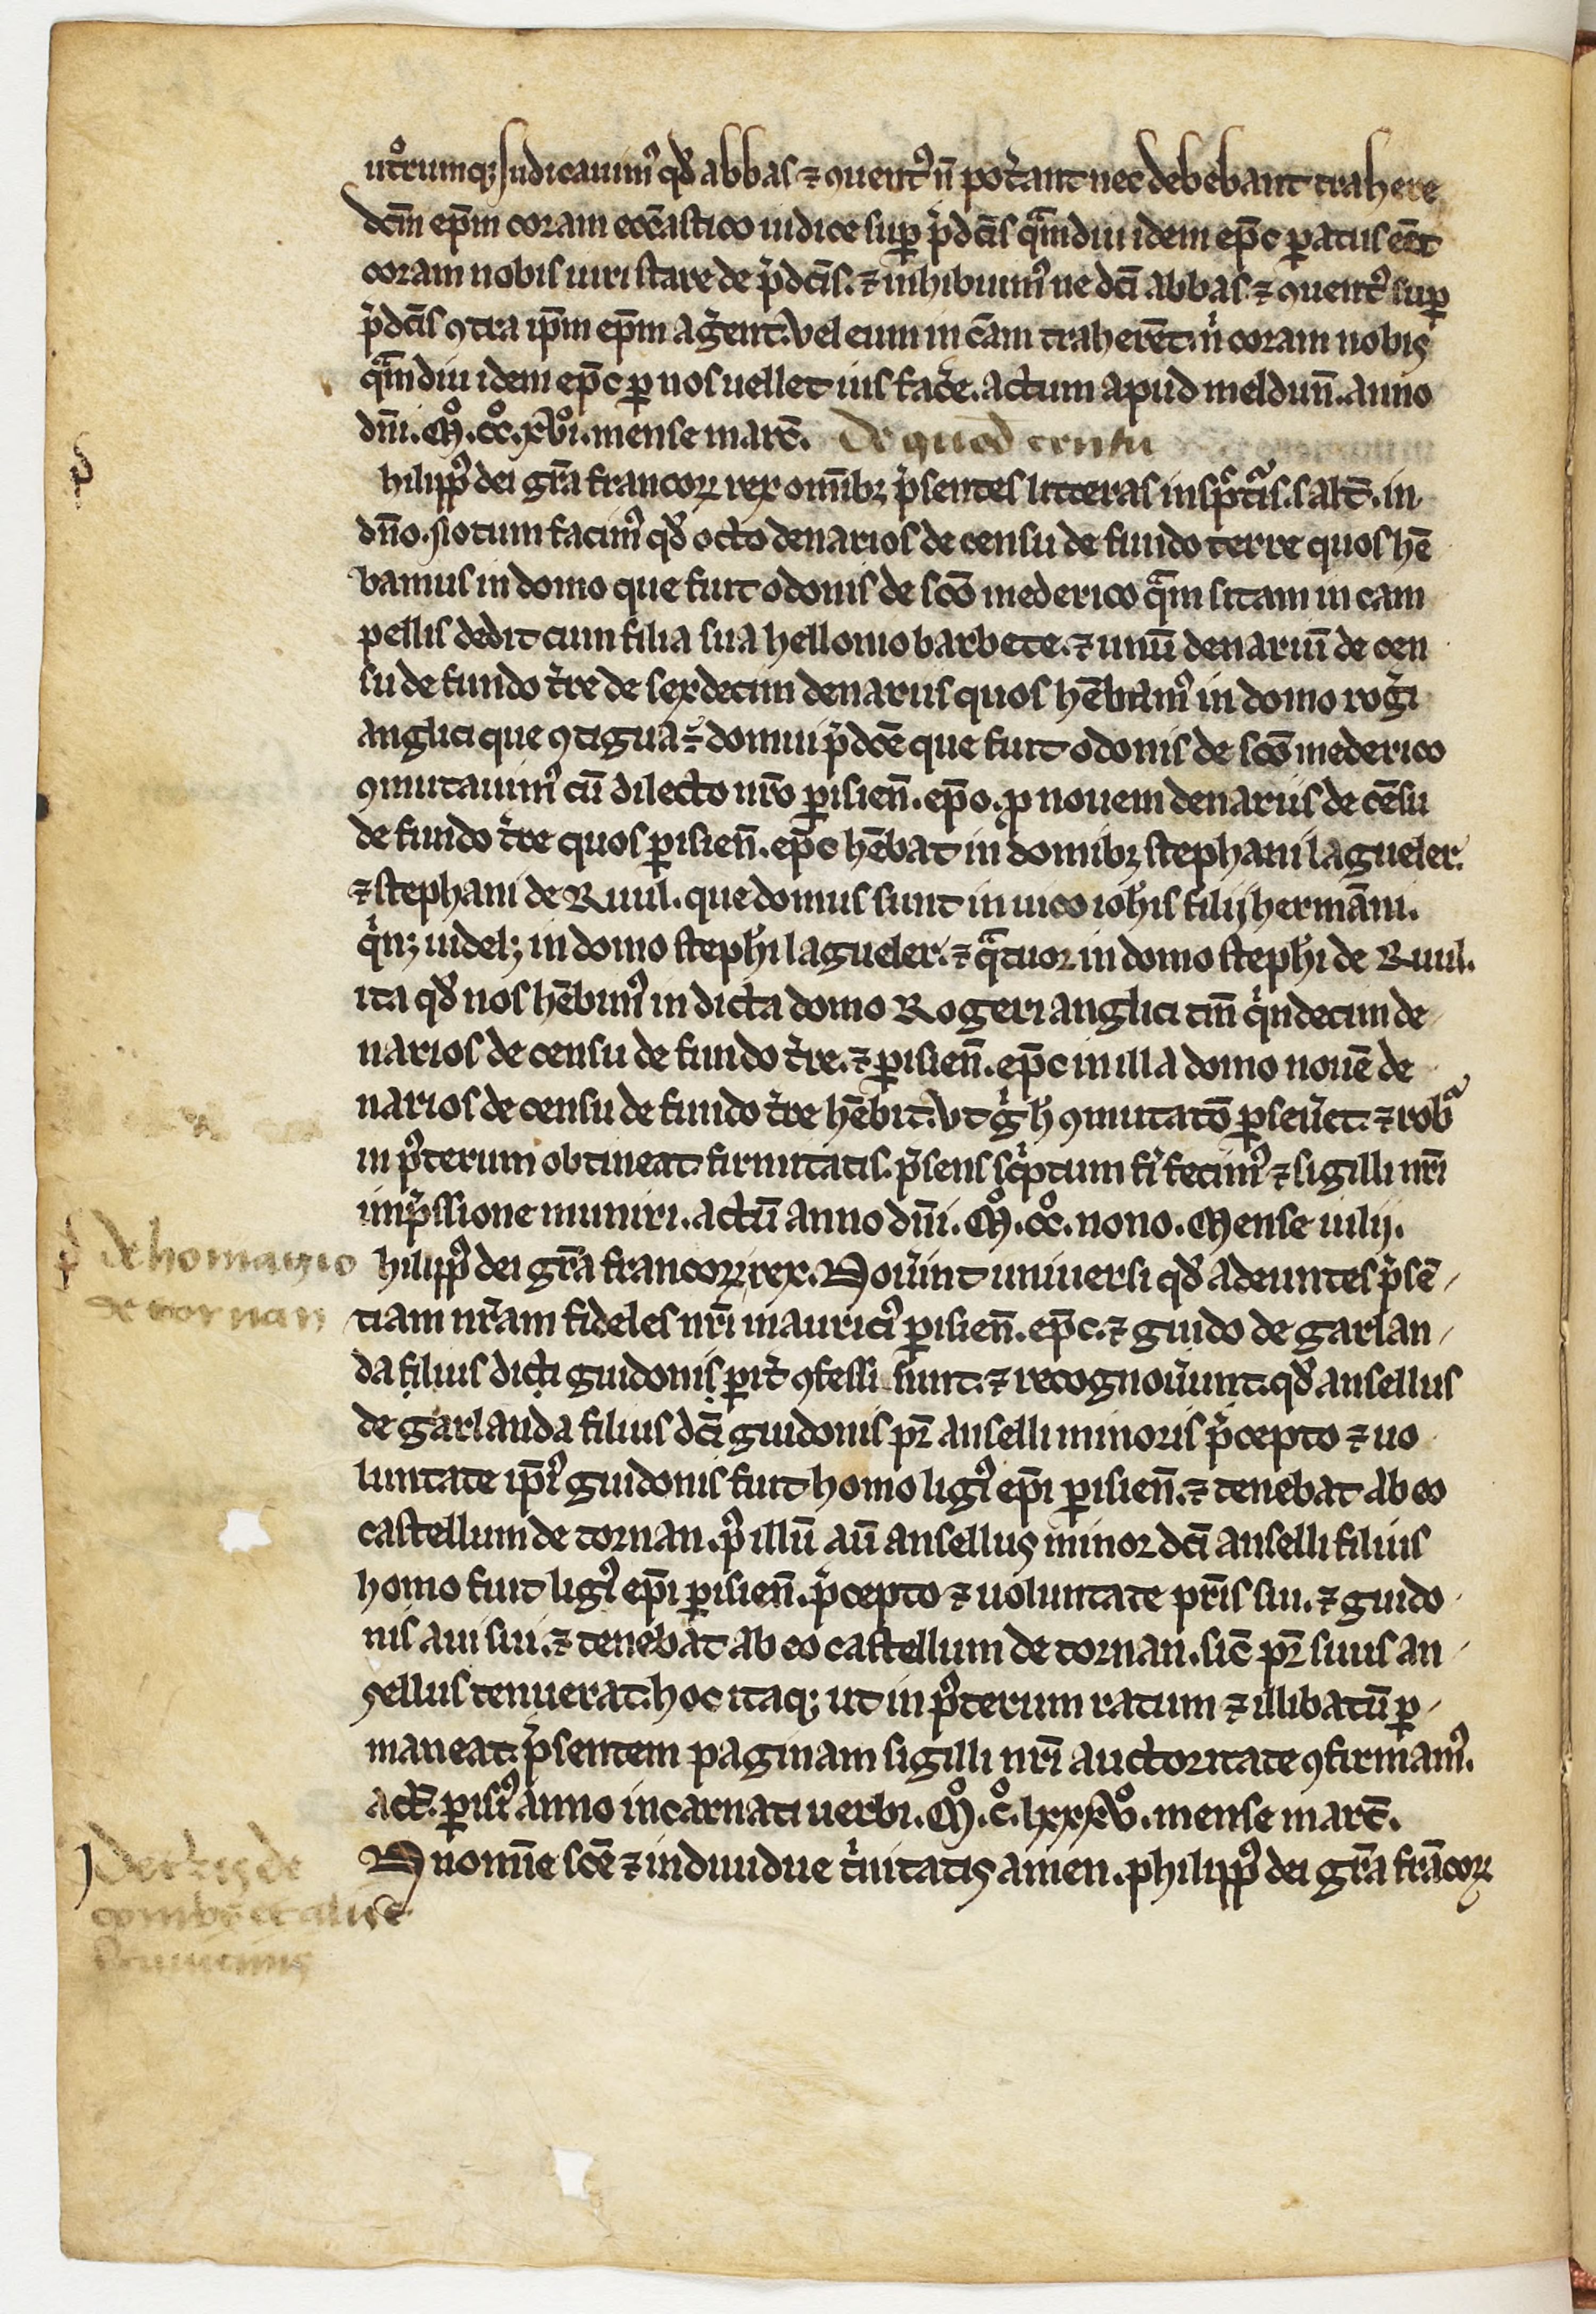 ut͛rumq; Iudicauimꝰ qđ abbas ⁊ ꝯuentꝰ n̄ pot͛ant nec debebant trahere
dc̄m ep̄m coram ecc̄astico iudice sup̱ p̄dc̄is qᵃmdiu idem ep̄c ꝑatus eēt
coram nobis iuri stare de p̄dc̄is. ⁊ inhibuimꝰ ne dc̄i abbas ⁊ ꝯuentꝰ sup̱
p̄dc̄is ꝯtra ip̄m ep̄m ag͛ent. vel eum in cām traherēt. nͥ coram nobis
qᵃmdiu idem ep̄c ꝑ nos uellet ius fac͛e. actum apud meldun̄. anno
dn̄i. Mͦ. ccͦ. xvͦi. mense marc̄. De quod censu
hilippꝰ dei gr̄a francoꝝ rex omībꝫ p̄sentes litteras inspͨturͥs. salt̄. in
dn̄o. Notum facimꝰ qđ octo denarios de censu de fundo terre quos hē
bamus in domo que fuit odonis de sc̄o mederico qᵃm sitam in cam
pellis dedit cum filia sua helloino barbete. ⁊ unū denariū de cen
su de fundo t͛re de sexdecim denariis quos hēbamꝰ in domo rog͛i
anglici que ꝯtigua ÷ domui p̄dc̄e que fuit odonis de sc̄o mederico
ꝯmutauimꝰ cū dilecto nr̄o ꝑisien̄. ep̄o. ꝓ nouem denariis de cēsu
de fundo t͛re quos ꝑisien̄. ep̄c hēbat in domibꝫ stephani lagueler.
⁊ stephani de Ruul. que domus sunt in uico ioh̄is filij hermānni.
qͥnqꝫ uidelꝫ in domo steph̄i lagueler. ⁊ qᵃtuor in domo steph̄i de Ruul.
ita qđ nos hēbimꝰ in dicta domo Rogeri anglici tm̄ qͥndecim de
narios de censu de fundo t͛re. ⁊ ꝑisien̄. ep̄c in illa domo nouē de
narios de censu de fundo t͛re hēbit. vt gͥ h̄ ꝯmutatō ꝑseu͛et. ⁊ robᵃ
in pꝰterum obtineat firmitatis. p̄sens scͥptum fiͥ fecimꝰ ⁊ sigilli nr̄i
imp̄ssione muniri. actū anno dn̄i. Mͦ. ccͦ. nono. Mense iulij.
de homagio
de tornan
hilippꝰ dei gr̄a francoꝝ rex. Nou͛int uniuersi qđ adeuntes p̄sē
tiam nr̄am fideles nr̄i mauriciꝰ ꝑisien̄. ep̄c. ⁊ guido de garlan
da filius dicti guidonis ꝑit͛ ꝯfessi sunt. ⁊ recognou͛unt. qđ ansellus
de garlanda filius dc̄i guidonis pr̄ anselli minoris p̄cepto ⁊ uo
luntate ip̄iꝰ guidonis fuit homo ligiꝰ ep̄i ꝑisien̄. ⁊ tenebat ab eo
castellum de tornan. pꝰ illū aū ansellus minor dc̄i anselli filius
homo fuit ligiꝰ ep̄i ꝑisien̄. p̄cepto ⁊ uoluntate pr̄is sui. ⁊ guido
nis aui sui. ⁊ tenebat ab eo castellum de tornan. sic̄ pr̄ suus an
sellus tenuerat. hoc itaq; ut in pꝰterum ratum ⁊ illibatū ꝑ
maneat. p̄sentem paginam sigilli nr̄i auctoritate ꝯfirmamꝰ.
act̄. ꝑisiꝰ anno incarnati uerbi. Mͦ. cͦ. lxxxvͦ. mense marc̄.
N nomīe sc̄e ⁊ indiuidue tͥnitatis amen. philippꝰ dei gr̄a frācoꝝ